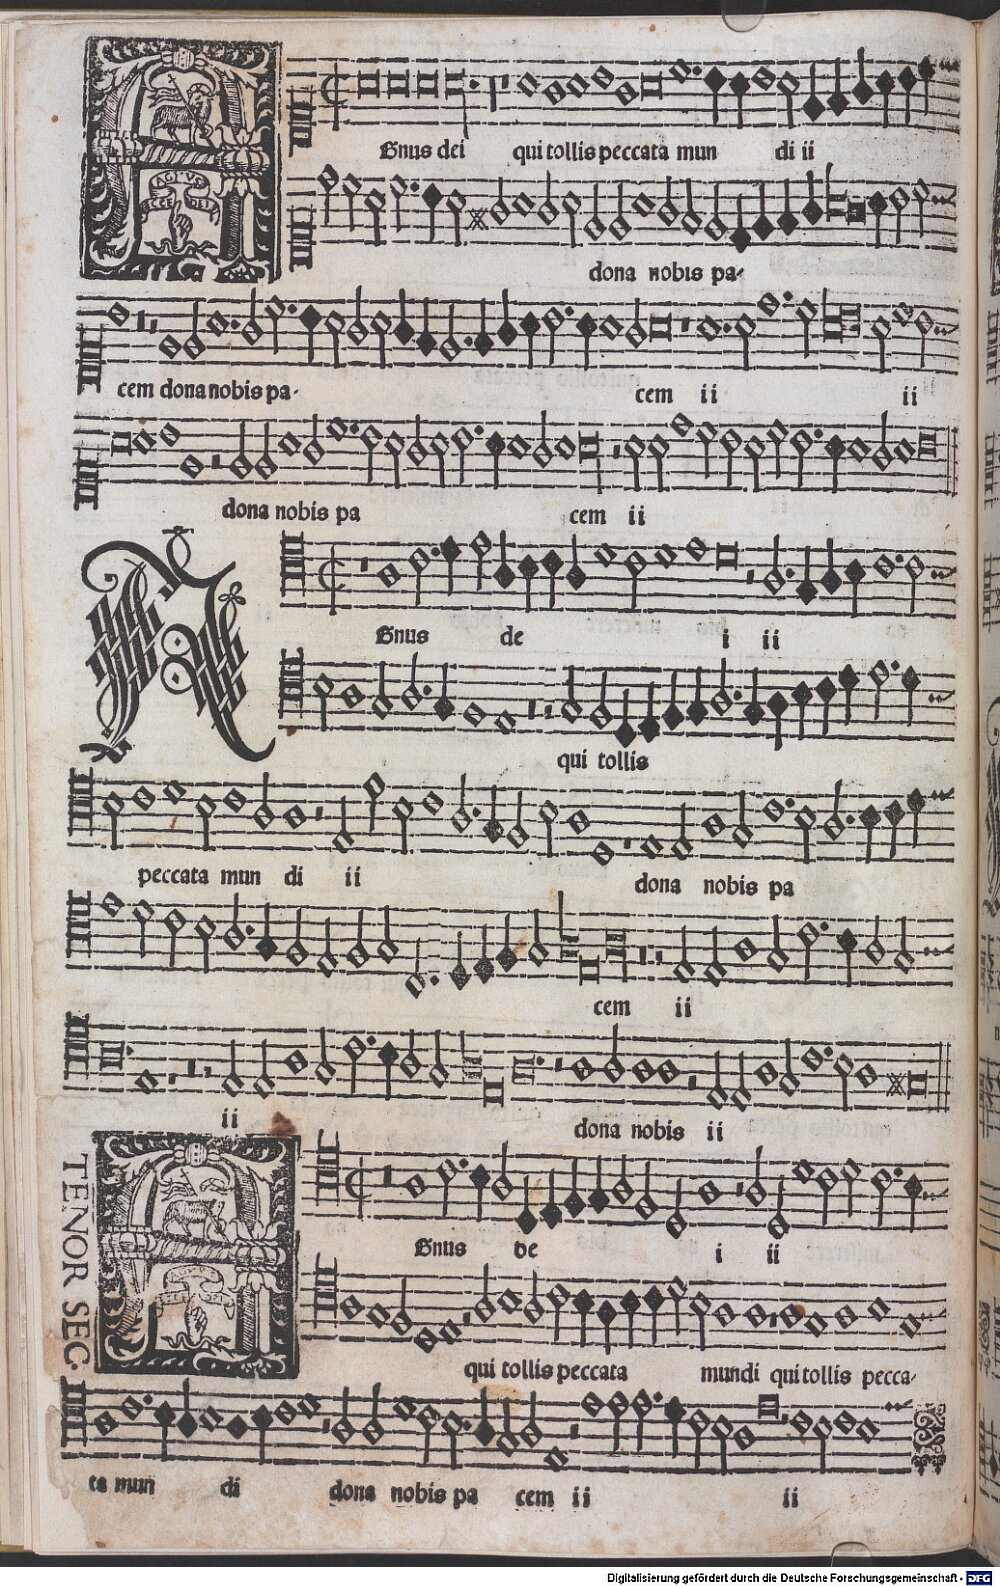 AGNVS
ECCE DEI
Gnus dei qui tollis peccata mun di ii
dona nobis pa-
cem dona nobis pa- cem ii ii
dona nobis pa cem ii
Gnus de i ii
qui tollis
peccata mun di ii dona nobis pa
cem ii
ii dona nobis ii
TENOR SEC.
Gnus de i ii
qui tollis peccata mundi qui tollis pecca-
ta mun di dona nobis pa cem ii ii
Digitalisierung gefördert durch die Deutsche Forschungsgemeinschaft - DFG